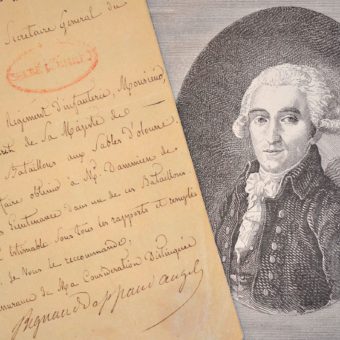 Secretaire General du
Regiment d'infanterie, Monsieur,
de Sa Majesté de
Bataillons aux Sables d'olonne.
faire obtenir à Mr. Dammien de
Lieutenance dans un de ces Bataillons
estimable sous tous les rapports et remplie
de Vous le recommander,
assurance de Ma Consideration Distinguee